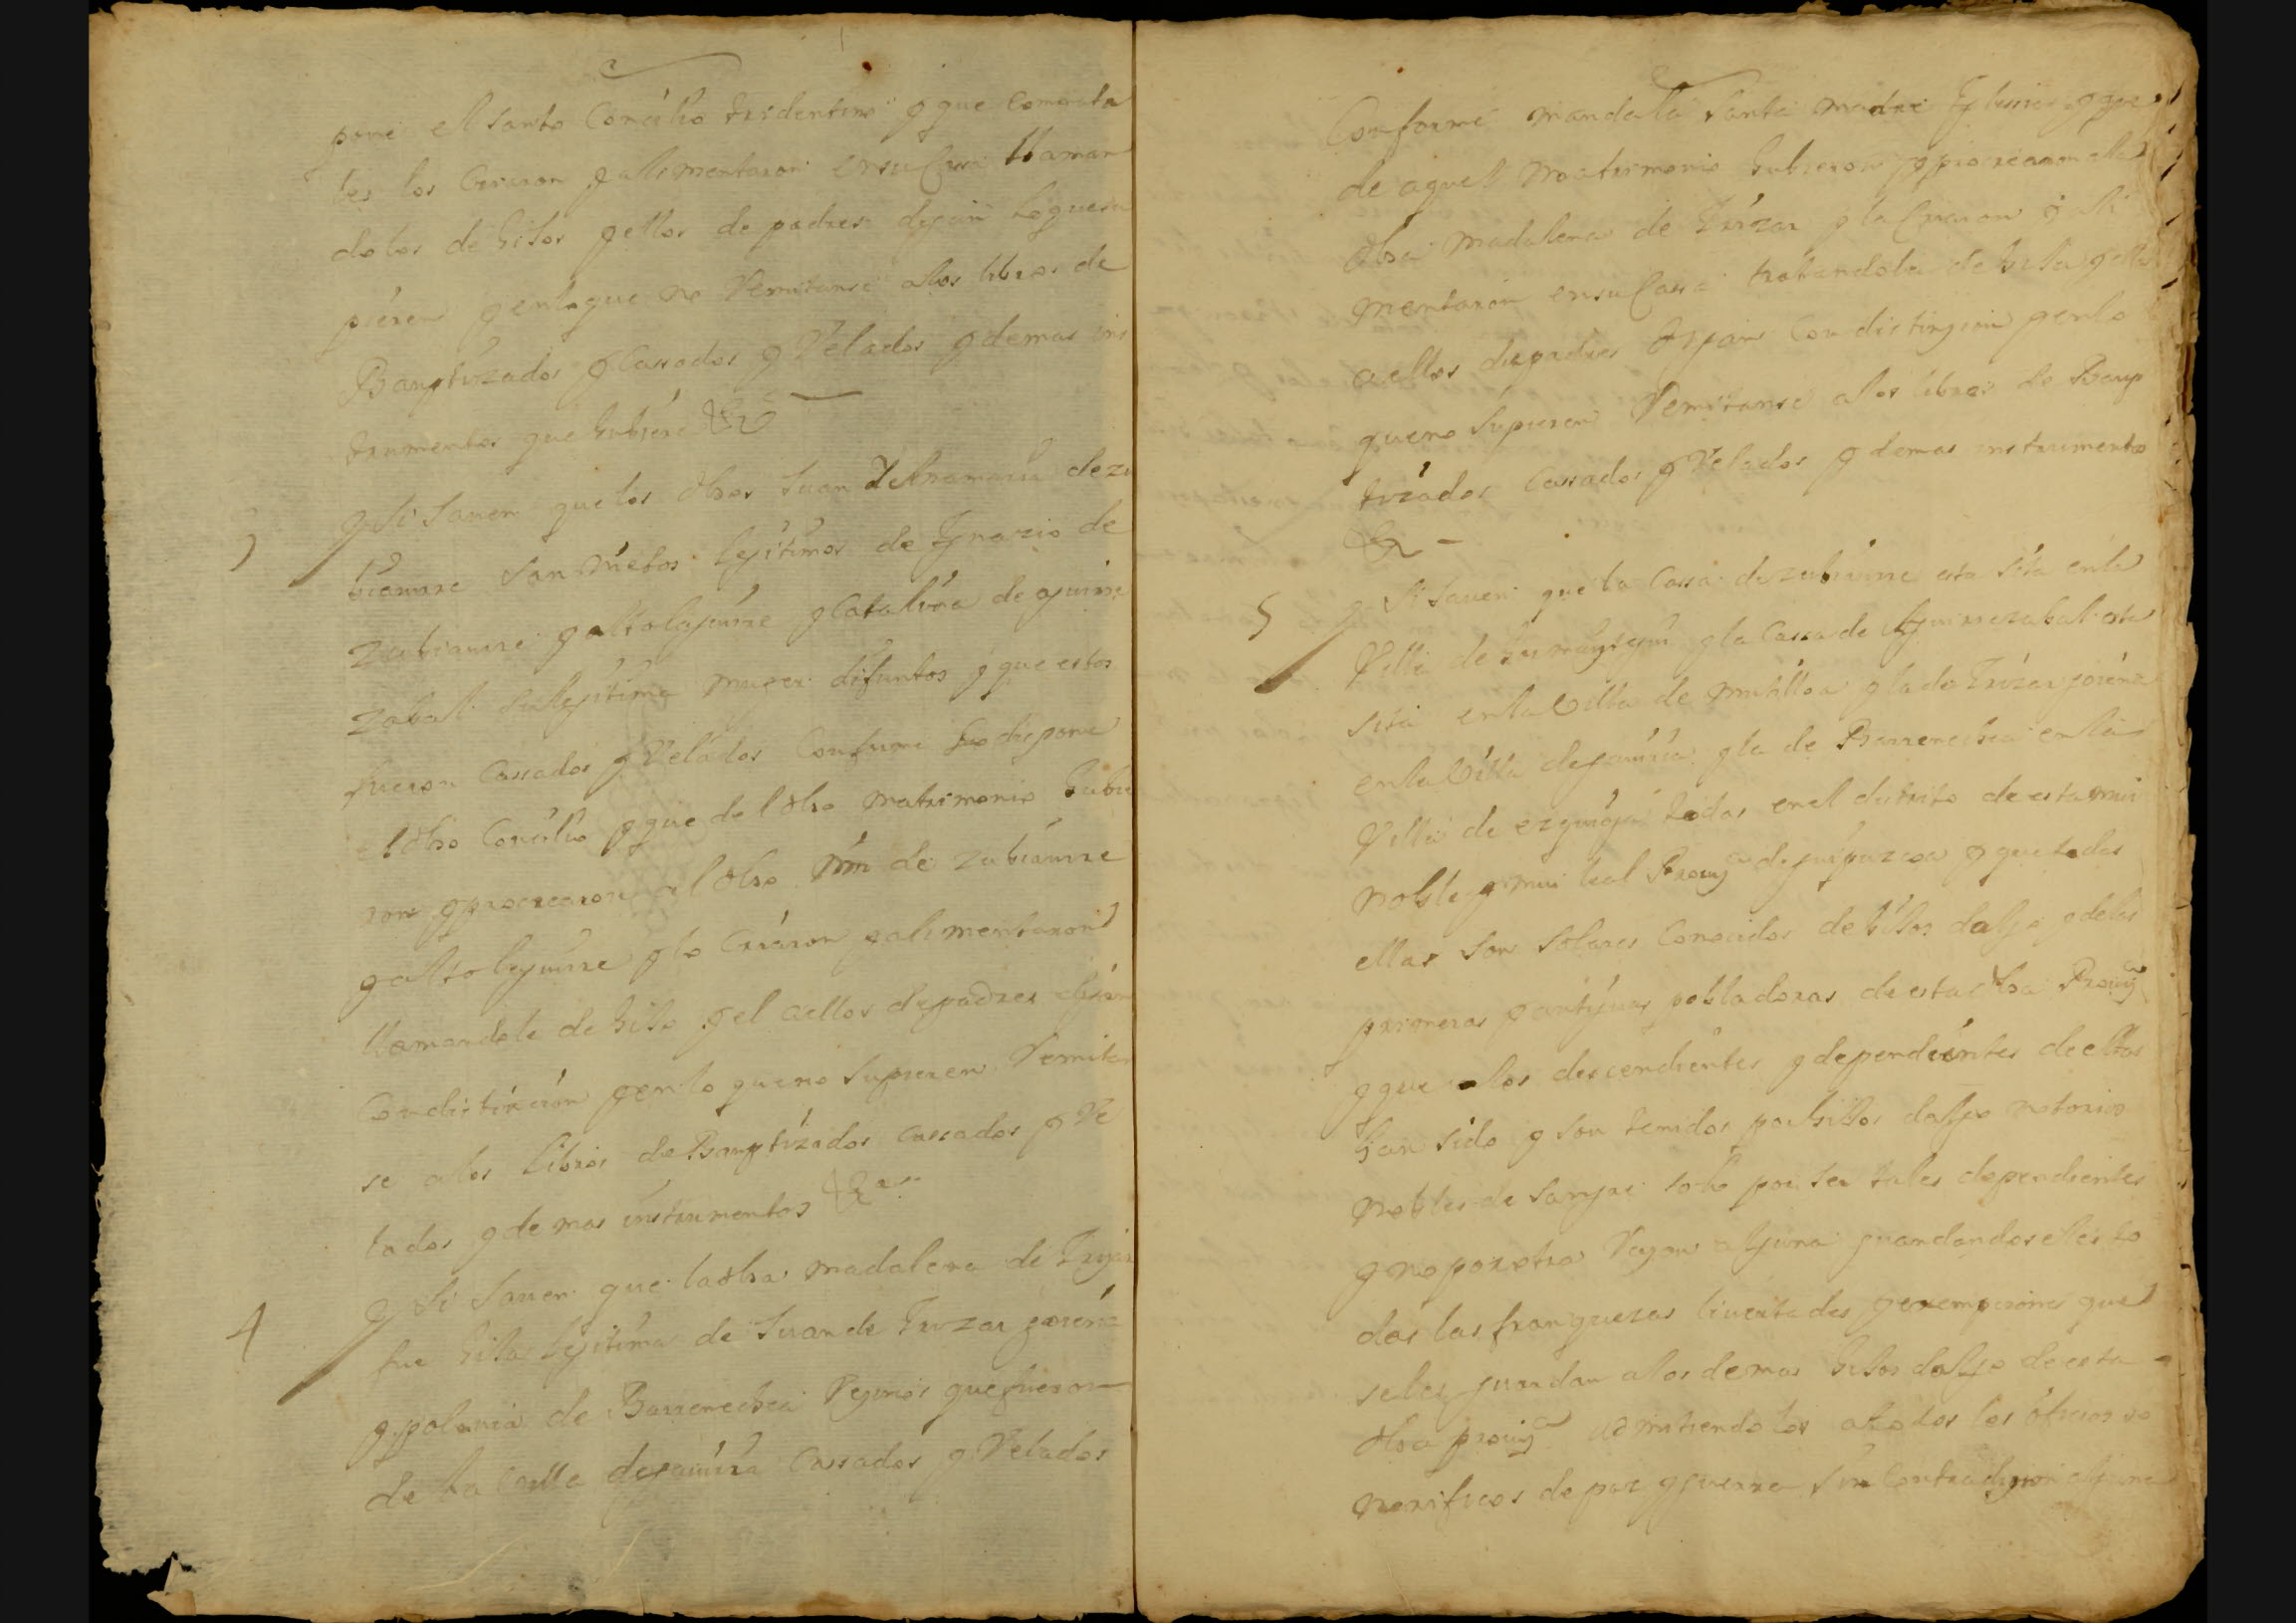 pone el santo Concilio tridentino y que como ta
les los Criaron y allimentaron en su Cassa llaman
dolos de hijos y ellos de padres digan lo que su
pieren y en lo que no Remitanse a los libros de
Bauptizados y Cassados y Velados y demas ins
trumentos que hubiere &a
3
y Si Saven que los dhos Juan
biaurre son nietos lejitimos de Ygnazio de
Zubiaurre y altolaguirre y Catalina de aguirre
Zabal su lejitima muger difuntos y que estos
fueron Cassados y Velados Conforme dispone
el dho Concilio y que del dho matrimonio hubie
ron y procrearon al dho Mn de Zubiaurre
y altolaguirre y lo Criaron y alimentaron
llamandole de hijo y el a ellos de padres digan
Con distincion y en lo que no supieren Remitan
se a los libros de Bauptizados cassados y Ve
lados y de mas instrumentos &a
4
y Si Saven que la dha madalena de Yrizar
fue hija lejitima de Juan de Yrizar
y polonia de Barrenechea Vezinos que fueron
de la Villa de gauiria Cassados y Velados
Conforme manda la santa madre Yglessia y que
de aquel matrimonio hubieron y procrearon a la
dha madalena de Yrizar y la Criaron y ali
mentaron en su Cassa tratandola de hija y ella
a ellos de padres digan Con distinzion y en lo
que no supieren Remitanse a los libros de Baup
tizados Cassados y Velados y demas instrumentos
&a
5
y Si Saven que la Cassa de zubiaurre esta sita en la
Villa de y la Cassa de Aguirrezabal esta
sita en la Villa de mutiloa y la de Yrizar
en la Villa de gauiria y la de Barrenechea en la
Villa de ezquioga todas en el distrito de esta mui
noble y mui leal Prouja de guipuzcoa y que todas
ellas son solares Conocidos de hijos dalgo y de las
primeras y antiguas pobladoras de esta dha Prouja
y que a los descendientes y dependientes de ellas
han sido y son tenidos por hijos dalgo notorios
nobles de sangre solo por ser tales dependientes
y no por otra Razon alguna guardandoseles to
das las franquezas liuertades y exempciones que
seles guardan a los demas hijos dalgo de esta
dha prouja admitiendolos a todos los oficios ho
norificos de paz y guerra sin Contradizion alguna